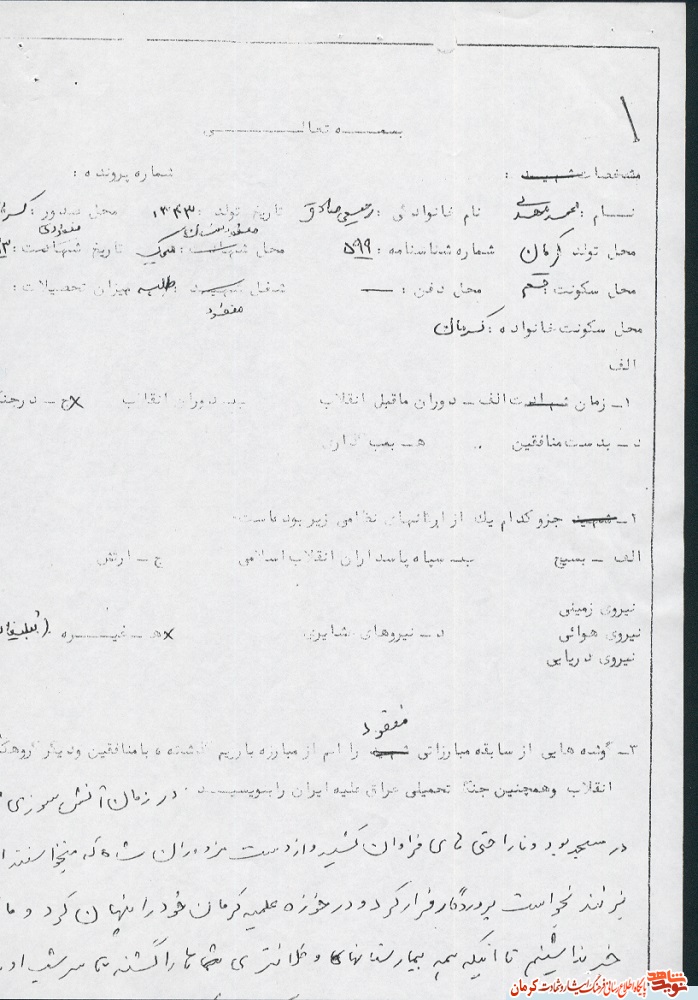 بسمه تعالی
مشخصات شهید :
شماره پرونده :
نام : محمد مهدی نام خانوادگی : رحیمی صادق تاریخ تولد : ۱۳۴۳ محل صدور : کر
مفقود شدن مفقودی
محل تولد کرمان شماره شناسنامه : ۵۹۹ محل شهادت : تاریخ شهادت : ۳
محل سکونت : قم محل دفن : — شغل شهید : طلبه میزان تحصیلات :
مفقود
محل سکونت خانواده : کرمان
الف
۱ــ زمان شهادت الف ــ دوران ماقبل انقلاب ب ــ دوران انقلاب xج ــ درجنگ
د ــ بدست منافقین هـ ــ بمب گذاری
۲ــ شهید جزو کدام یک از ارگانهای نظامی زیر بوده است
الف ــ بسیج ب ــ سپاه پاسداران انقلاب اسلامی ج ــ ارتش
نیروی زمینی
نیروی هوائی د ــ نیروهای عشایری xهـ ــ غیره (تبلیغات
نیروی دریایی
مفقود
۳ــ گوشه هایی از سابقه مبارزاتی شهید را اعم از مبارزه با رژیم گذشته و با منافقین و دیگر گروهک
انقلاب وهمچنین جنگ تحمیلی عراق علیه ایران را بنویسید . در زمان آتش سوزی
در مسجد بود و ناراحتی های فراوان کشید و از دست مزدوران شاه که میخواستند
بزنند نجواست پروردگار فرار کرد و در حوزه علمیه کرمان خود را پنهان کرد و ما
خبر نداشتیم تا اینکه همه بیمارستانها و کلانتری ها را گشته تا سر شب او
نوید شاهد
پایگاه اطلاع رسانی فرهنگ ایثار و شهادت کرمان